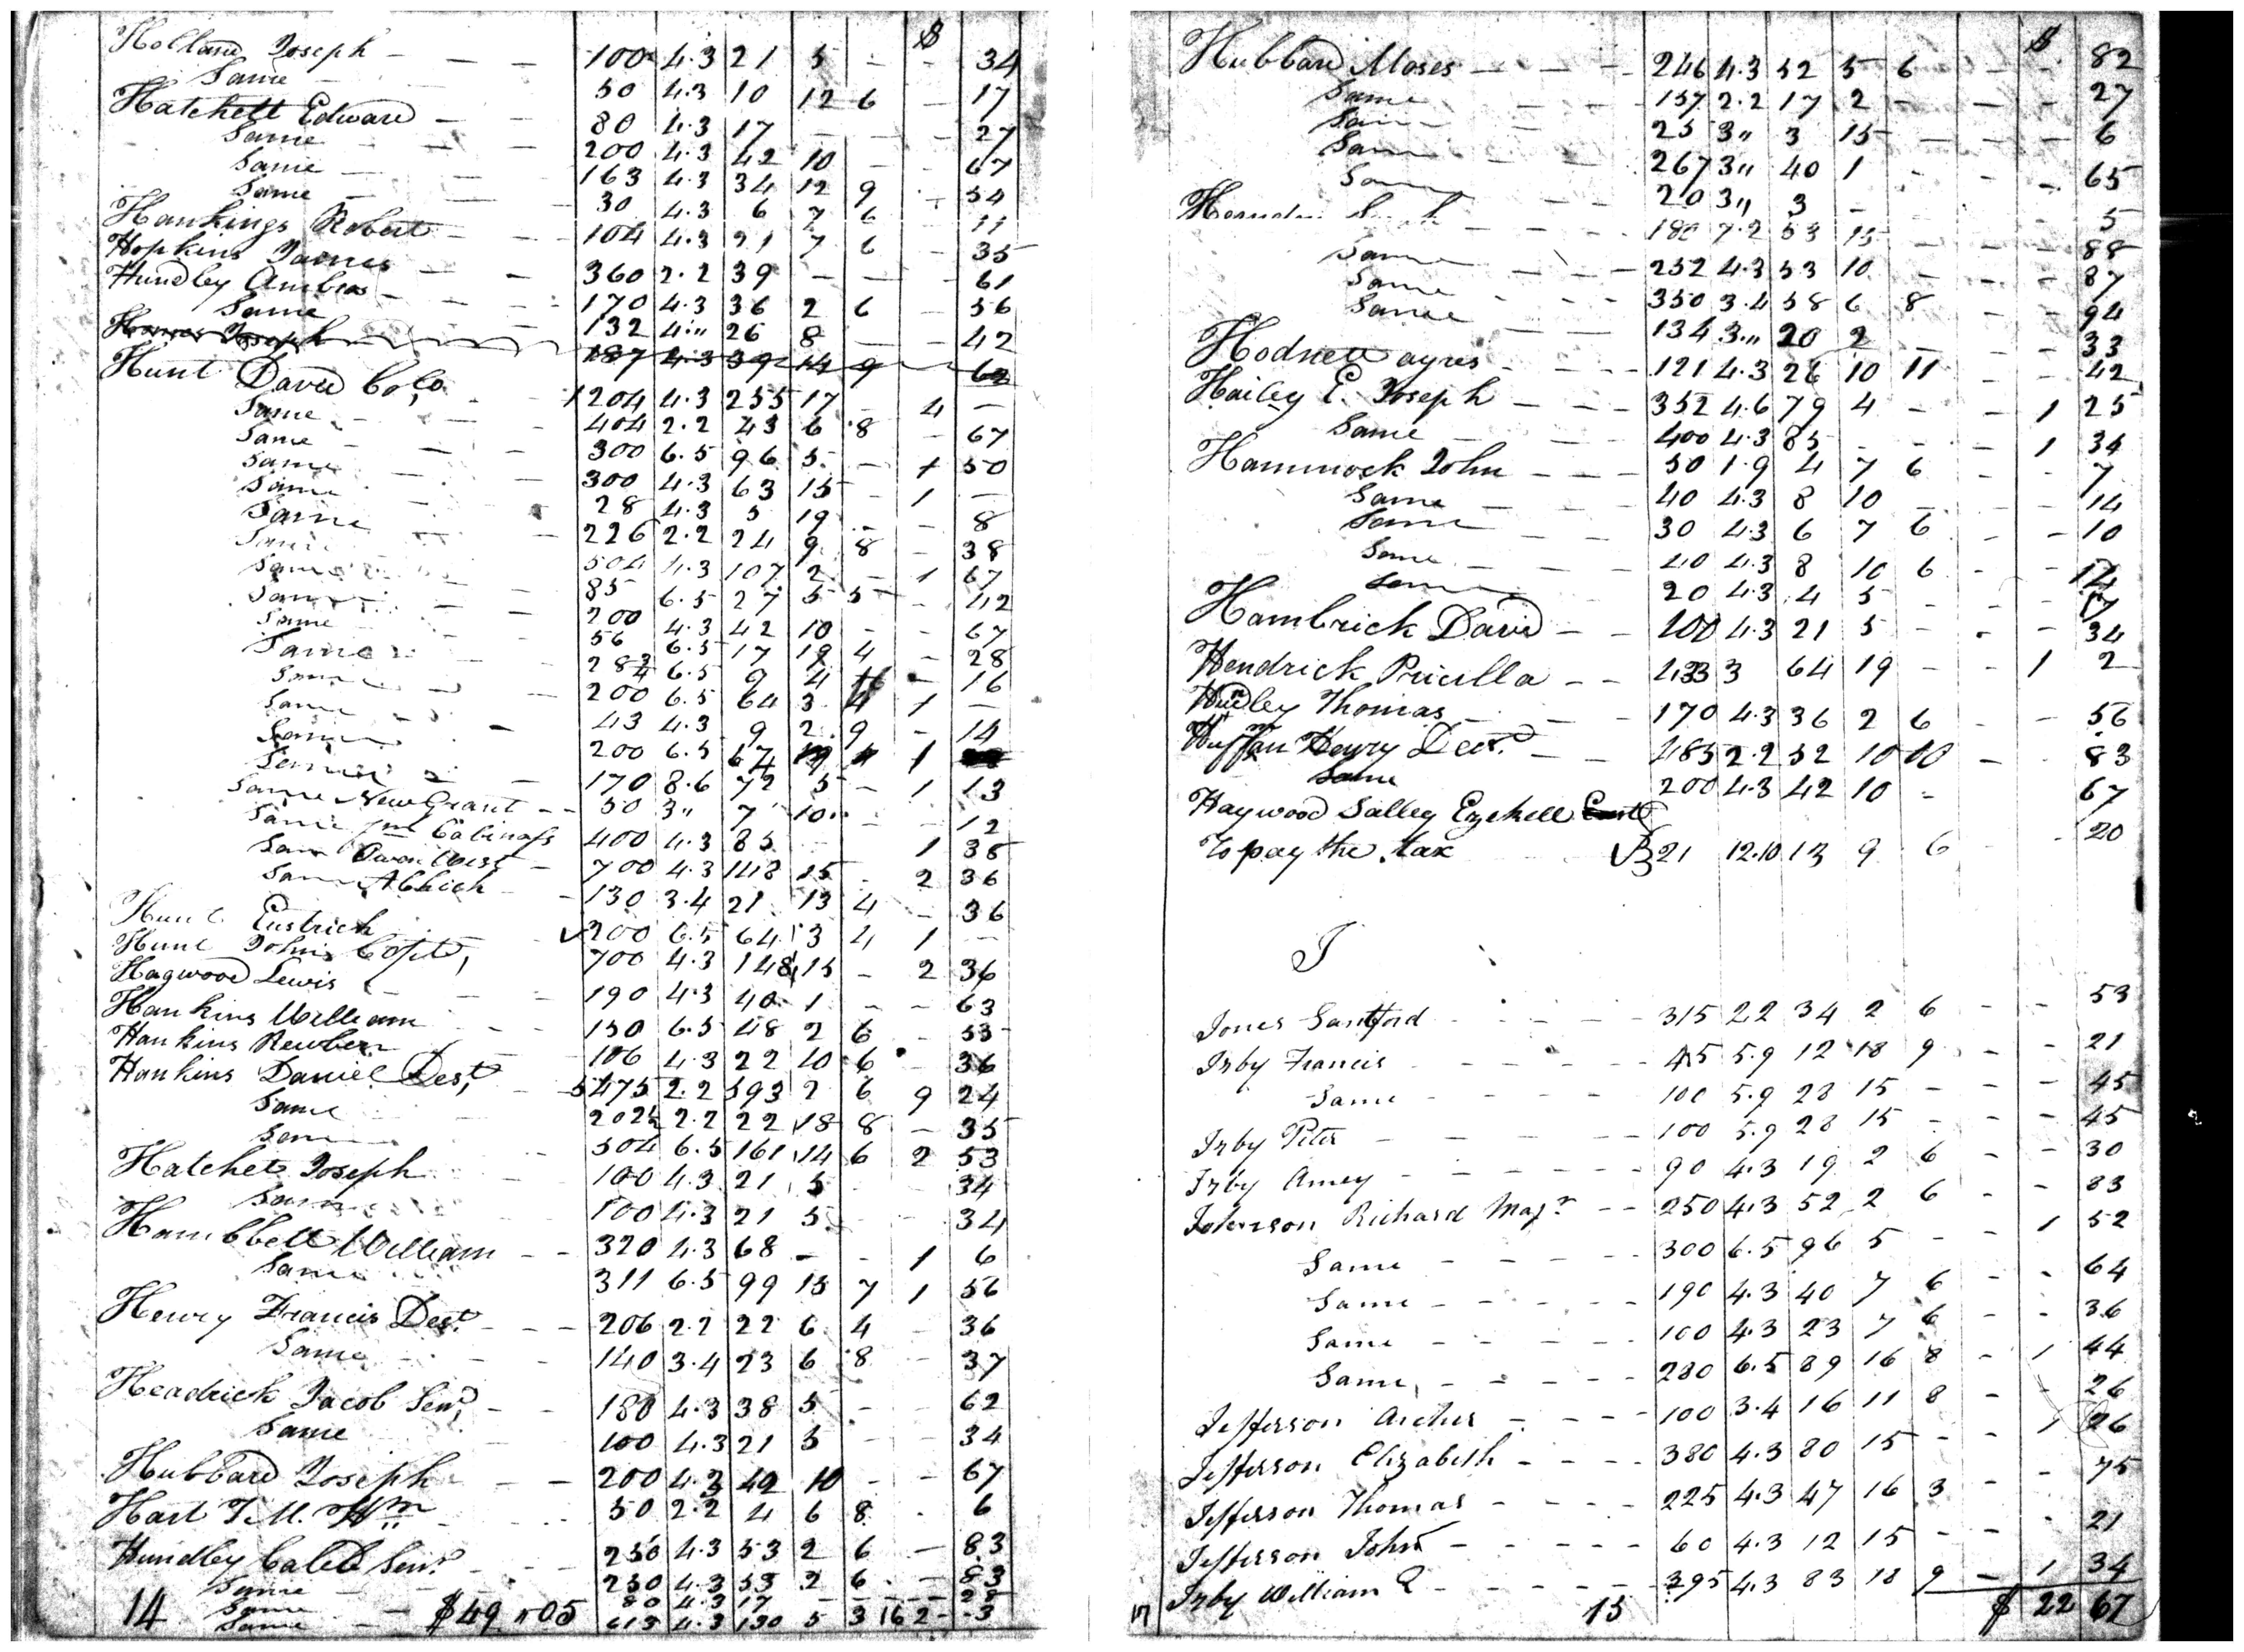 $
Holland Joseph — — — 100 4.3 21 5 - - 34
Same 50 4.3 10 12 6 — 17
Hatchett Edward — — 80 4.3 17 — — — 27
Same — — 200 4.3 42 10 — — 67
Same — — 163 4.3 34 12 9 - 54
Same — 30 4.3 6 7 6 - 11
Hankings Robert — — 104 4.3 21 7 6 — 35
Hopkins James — — 360 2.2 39 — — — 61
Hundley Ambros — — 170 4.3 36 2 6 — 56
Same 132 4.,, 26 8 — — 42
Joseph 187 4.3 39 14 9
Hunt David Co,Co 1204 4.3 255 17 - 4 —
Same — 404 2.2 43 6 8 — 67
Same — 300 6.5 96 5 — 1 50
Same 300 4.3 63 15 - 1 —
Same 28 4.3 5 19 - - 8
Same — 226 2.2 24 9 8 — 38
Same 504 4.3 107 2 — 1 67
Same 85 6.5 27 5 5 - 42
Same 200 4.3 42 10 - - 67
Same 56 6.5 17 19 4 — 28
Same 28 3/4 6.5 9 4 — 16
Same 200 6.5 64 3 4 1 —
Same 43 4.3 9 2 9 - 14
Same 200 6.5 64 1
Same — 170 8.6 72 5 - 1 13
Same New Grant -- 50 3,, 7 10 - - 12
Same 400 4.3 85 1 35
Same 700 4.3 148 15 - 2 36
Same 130 3.4 21 13 4 — 36
Hunt 200 6.5 64 3 4 1 —
Hunt John Capt, 700 4.3 148 15 - 2 36
Hagwood Lewis — 190 4.3 40 1 - - 63
Hankins William 150 6.5 48 2 6 - 53
Hankins Reuben 106 4.3 22 10 6 36
Hankins Daniel Dest, 5475 2.2 593 2 6 9 24
Same 202½ 2.2 22 18 8 — 35
Same 504 6.5 161 14 6 2 53
Hatchet Joseph 100 4.3 21 5 34
Same 100 4.3 21 5 34
Hambblett William -- 320 4.3 68 - - 1 6
Same 311 6.5 99 15 7 1 56
Henry Francis Dest. — — 206 2.2 22 6 4 36
Same 140 3.4 23 6 8 — 37
Headrick Jacob Senr, -- 180 4.3 38 5 - - 62
Same 100 4.3 21 5 - - 34
Hubbard Joseph — 200 4.3 42 10 - - 67
Hart T. M. Wm 50 2.2 4 6 8 - 6
Hundley Caleb Senr. 250 4.3 53 2 6 — 83
Same 250 4.3 53 2 6 - 83
Same 80 4.3 17 — — — 28
14 Same $49 " 05 613 4.3 130 5 3 16 2 - 3
$
Hubbard Moses — — — 246 4.3 52 5 6 - - 82
Same — — 157 2.2 17 2 - — - 27
Same — 25 3,, 3 15 — — - 6
Same — — 267 3,, 40 1 - - - 65
Same — — 20 3,, 3 - 5
Herndon 180 7.2 53 15 — — - 88
Same — — 252 4.3 53 10 - - 87
Same — 350 3.4 58 6 8 - - 94
Same — — 134 3,, 20 2 — — - 33
Hodnett ayres - - - 121 4.3 26 10 11 - - 42
Hailey E. Joseph — — - 352 4.6 79 4 - — 1 25
Same — — 400 4.3 85 - - - 1 34
Hammock John — — - 50 1.9 4 7 6 - - 7
Same — — 40 4.3 8 10 - - - 14
Same — — 30 4.3 6 7 6 - - 10
Same — — 40 4.3 8 10 6 - - 14
Same — — 20 4.3 4 5 - - - 7
Hambrick David — — 100 4.3 21 5 - - - 34
Hendrick Pricilla — — 433 3 64 19 - - 1 2
Hundley Thomas — — 170 4.3 36 2 6 - - 56
Huffman Henry Dest. — — 485 2.2 52 10 10 — - 83
Same 200 4.3 42 10 - 67
Haywood Salley Ezekell
To pay the tax 21 12.10 13 9 6 - 20
J
Jones Santford - - - - 315 2.2 34 2 6 - - 53
Irby Francis - - - - 45 5.9 12 18 9 - - 21
Same - - - - 100 5.9 28 15 - - - 45
Irby Peter - - - - 100 5.9 28 15 - - - 45
Irby Amey - - - - - 90 4.3 19 2 6 - - 30
Johnson Richard Majr. -- 250 4.3 52 2 6 - - 83
Same - - - - 300 6.5 96 5 - - 1 52
Same - - - - - 190 4.3 40 7 6 - - 64
Same - - - - 100 4.3 23 7 6 - - 36
Same, - - - - - 280 6.5 89 16 8 - 1 44
Jefferson Archer - - - - 100 3.4 16 11 8 - - 26
Jefferson Elizabeth - - - - 380 4.3 80 15 - - 1 26
Jefferson Thomas - - - - 225 4.3 47 16 3 - - 75
Jefferson John - - - - - 60 4.3 12 15 - - - 21
Irby William Q - - - - - 395 4.3 83 18 9 - 1 34
15 $ 22 67